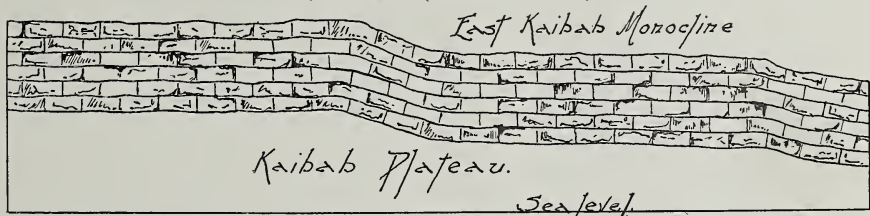 East Kaibab Monocline
Kaibab Plateau.
Sea level.